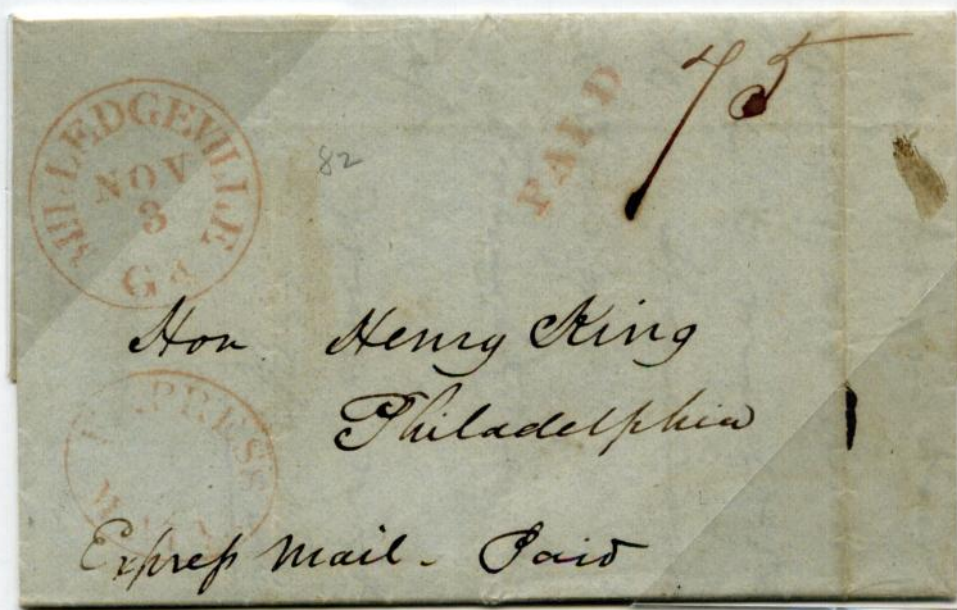 MILLEDGEVILLE
NOV
3
Ga
82
PAID
75
Hon Henry King
Philadelphia
EXPRESS
MAIL
Express Mail - Paid